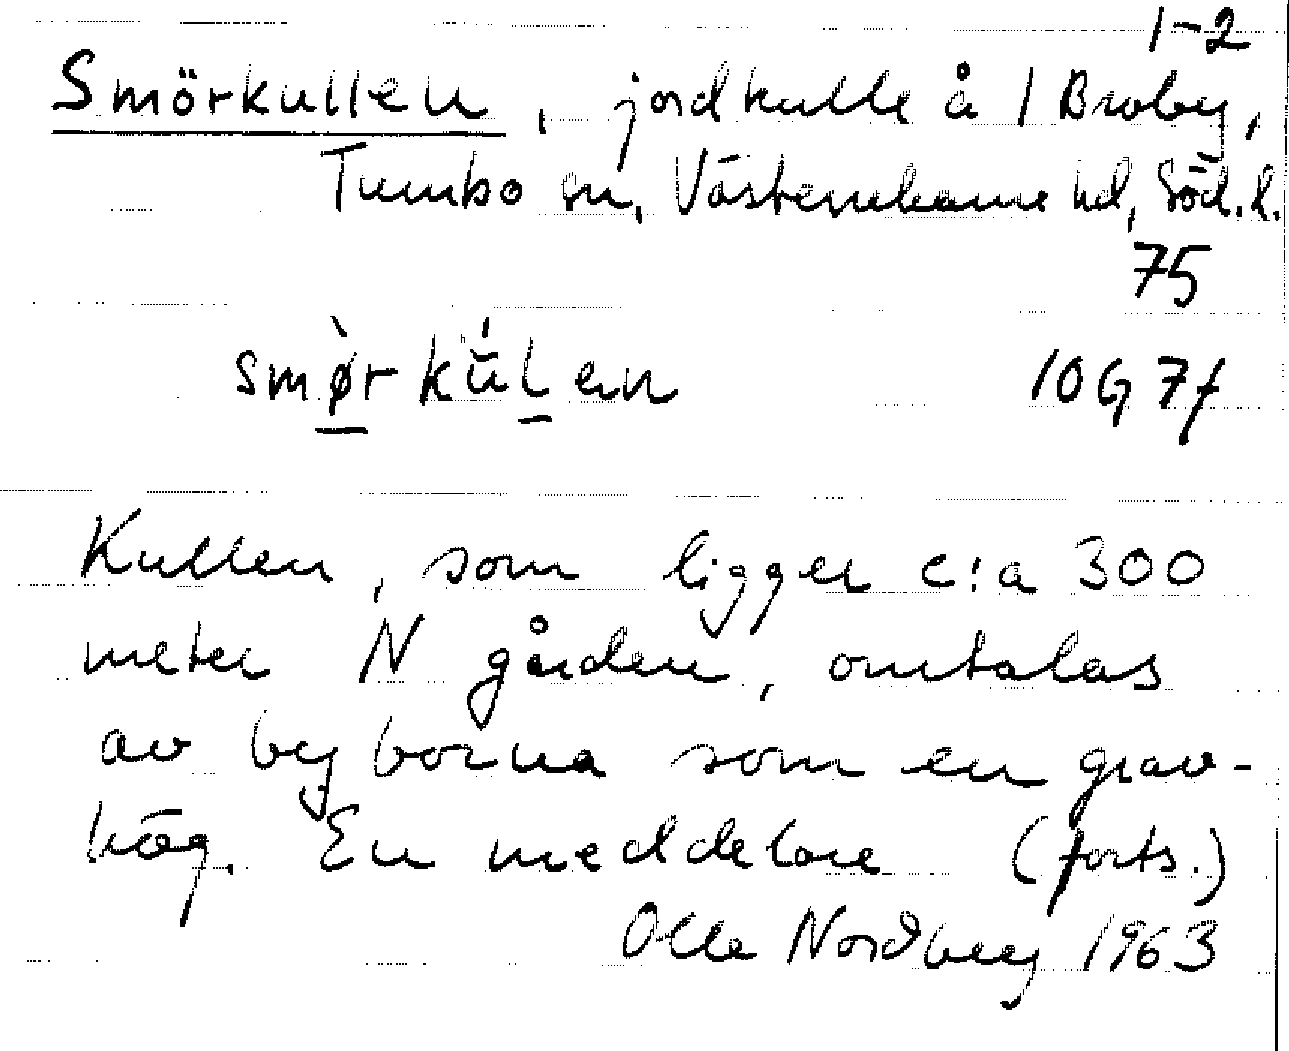 1-2
Smörkullen, jordkulle å 1 Broby,
Tumbo sn, Västerrekarne hd, Söd.l.
75
smø̀rkúlen 10G 7f
Kullen, som ligger c:a 300
meter N gården, omtalas
av byborna som en grav-
hög. En meddelare (forts.)
Olle Nordberg 1963